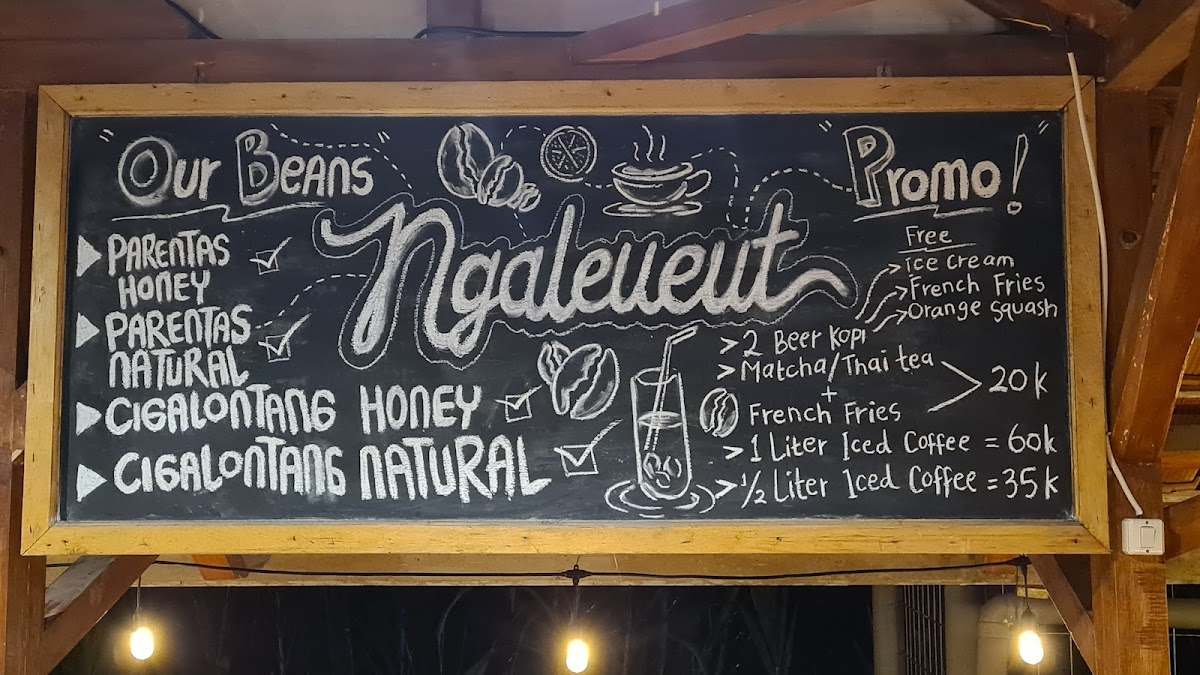 "Our Beans"
PARENTAS
HONEY
PARENTAS
NATURAL
CIGALONTANG HONEY
CIGALONTANG NATURAL
Ngaleueut
"Promo!"
Free
> Ice Cream
> French Fries
> Orange Squash
> 2 Beer Kopi
> Matcha/Thai tea
+
French Fries
20k
> 1 Liter Iced Coffee = 60k
> 1/2 Liter Iced Coffee = 35k